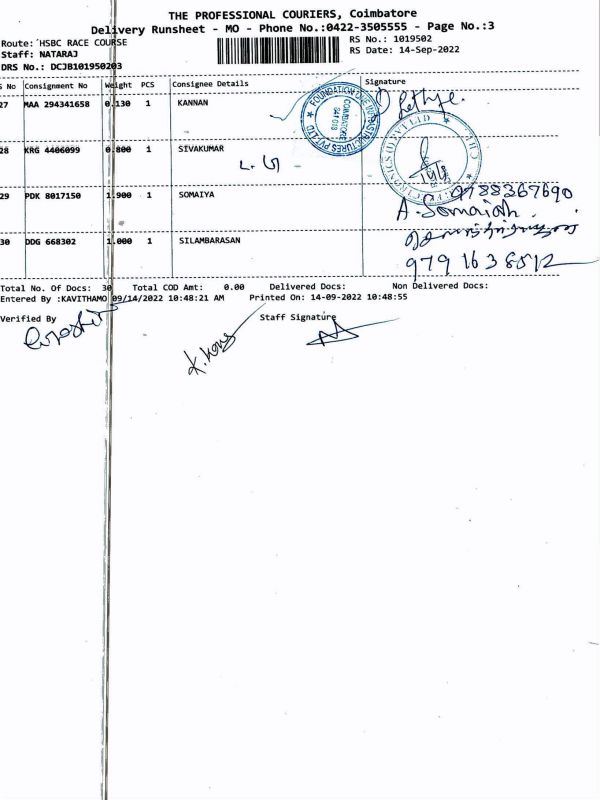 THE PROFESSIONAL COURIERS, Coimbatore
Delivery Runsheet - MO - Phone No.:0422-3505555 - Page No.:3
Route: HSBC RACE COURSE
RS No.: 1019502
Staff: NATARAJ
RS Date: 14-Sep-2022
DRS No.: DCJB101950203
S No Consignment No Weight PCS Consignee Details Signature
27 MAA 294341658 0.130 1 KANNAN
FOUNDATION ONE INFRASTRUCTURES PVT LTD
COIMBATORE
641018
28 KRG 4406099 0.800 1 SIVAKUMAR
29 PDK 8017150 1.900 1 SOMAIYA
9788367690
A. Somaiah.
30 DDG 668302 1.000 1 SILAMBARASAN
9791638512
Total No. Of Docs: 30 Total COD Amt: 0.00 Delivered Docs: Non Delivered Docs:
Entered By :KAVITHAMO 09/14/2022 10:48:21 AM Printed On: 14-09-2022 10:48:55
Verified By Staff Signature